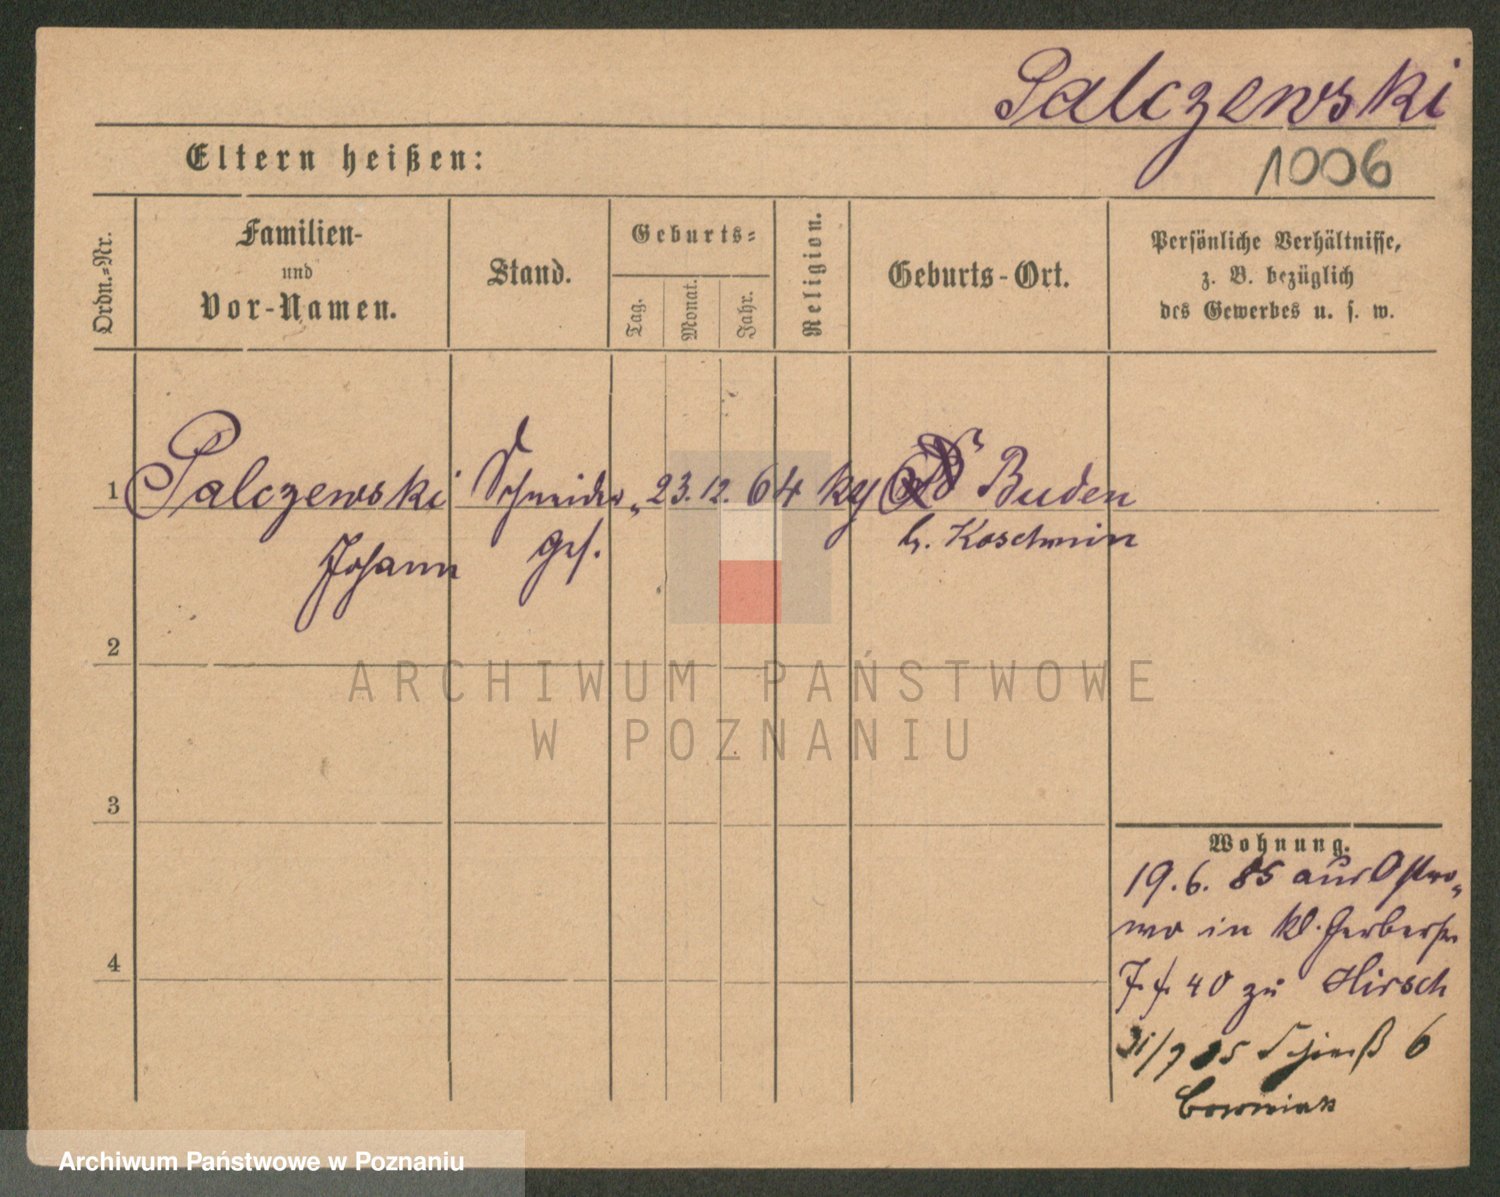 Palczewski
1006
Eltern heißen:
Ordn.=Nr.
Familien-
und
Vor-Namen.
Stand.
Geburts=
Tag.
Monat.
Jahr.
Religion.
Geburts-Ort.
Persönliche Verhältnisse,
z. B. bezüglich
des Gewerbes u. s. w.
1 Palczewski Schneider„ 23. 12. 64 Buden
Johann ges. b. Koschmin
2
3
4
Wohnung.
19. 6. 85 aus Ostro„
wo in kl. Gerberstr
40 zu Hirsch
85 Schieß 6
ARCHIWUM PAŃSTWOWE
W POZNANIU
Archiwum Państwowe w Poznaniu